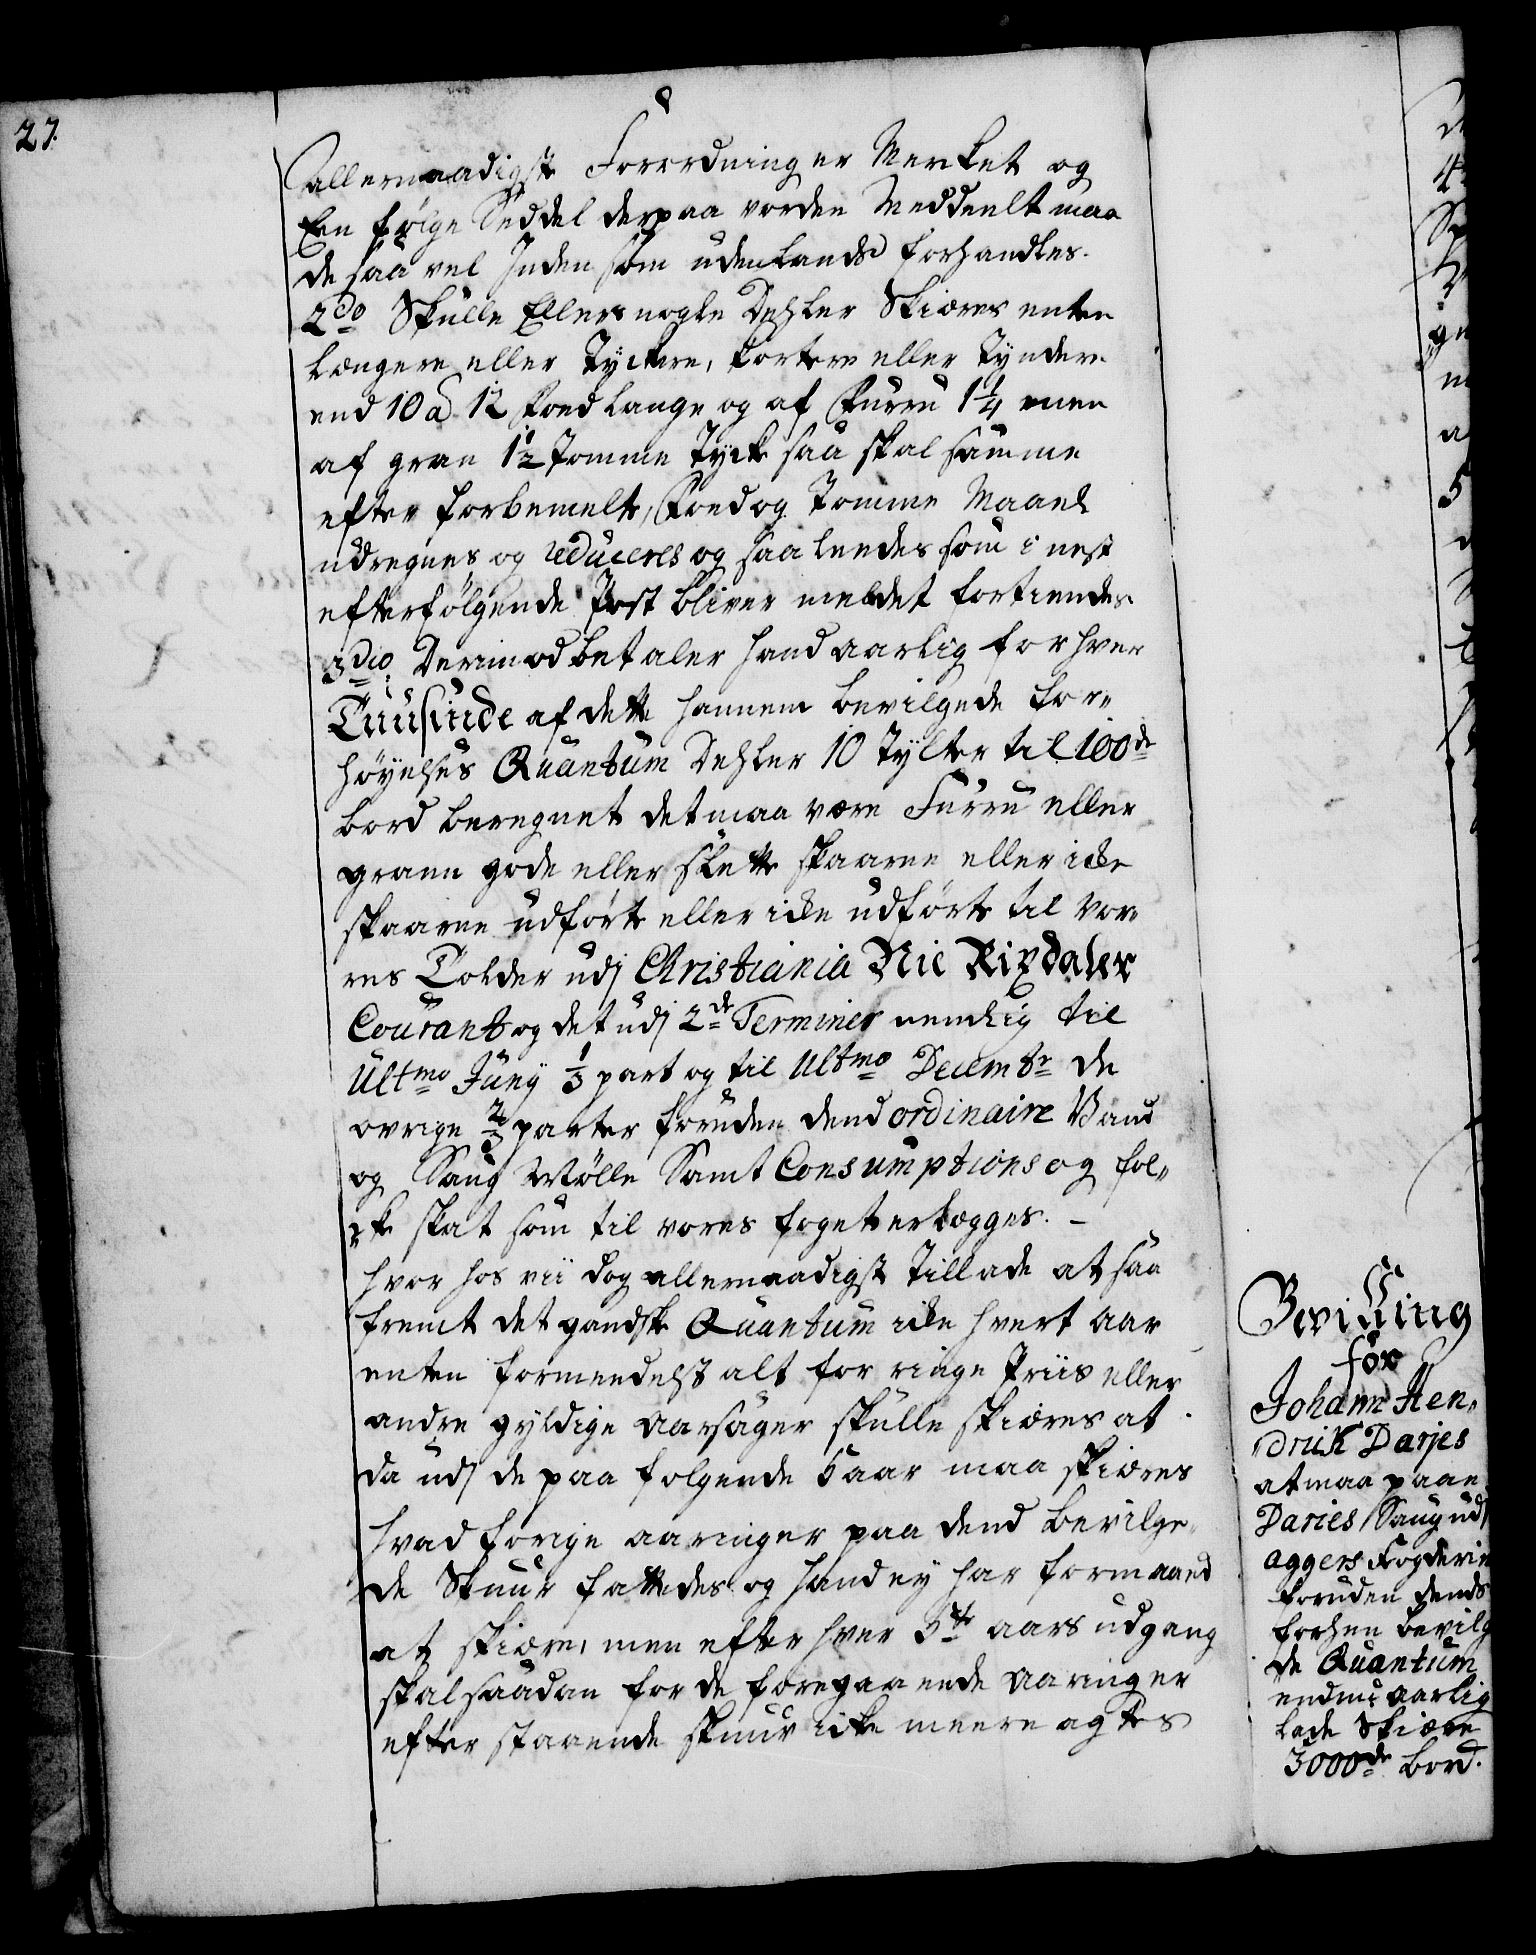 27.
allernaadigste Forordninger Merket og
Een følge Seddel derpaa vorden Meddeelt maa
de saa vel Inden som udenlands forhandles.
2do Skulle Ellers nogle Dehler Skiæres enten
længere eller Tyckere, kortere eller Tyndere
end 10 a 12 foed lange og af Furru 1 1/4 men
af gran 1 1/2 Tomme Tyck saa skal samme
efter forbemelte, Foed og Tomme Maael
udregnes og reduceres og saaleedes som i nest
efterfølgende Post bliver meldet fortiendes
3dio: Derimod betaler hand aarlig for hver
Tuusinde af dette hannem bevilgede for„
høyelses Quantum Dehler 10 Tylter til 100de
bord beregnet det maa være Furru eller
grann gode eller slette skaarne eller icke
skaarne udførte eller icke udførte til vor„
res Tolder udj Christiania Nie Rixdaler
Courant og det udj 2de Terminer nemlig til
Ultmo Junij 1/3 part og til Ultmo Decembr de
øvrige 2/3 parter foruden dend ordinaire Vand
og Saug Mølle Samt Consumptions og fol„
cke skat som til vores foget erlægges. –
hvor hos vii dog allernaadigst Tillade at saa
fremt det gandske Quantum icke hvert aar
enten formeedelst alt for ringe Priis eller
andre gyldige aarsager skulle skiæres at
da udj de paa følgende 5 aar maa skiæres
hvad forige aaringer paa dend bevilge„
de Skuur fattedes og hand ey har formaaed
at skiære, men efter hver 5te aars udgang
skal saadan for de foregaaende aaringer
efter staaende skuur icke meere agtes
Bevilling
for
Johann Hen„
drik Darjes
at maa paa
Daries Saug udj
aggers Fogderie
foruden dend
forhen bevilg
de Quantum
endnu aarlig
lade Skiære
3000de bord.